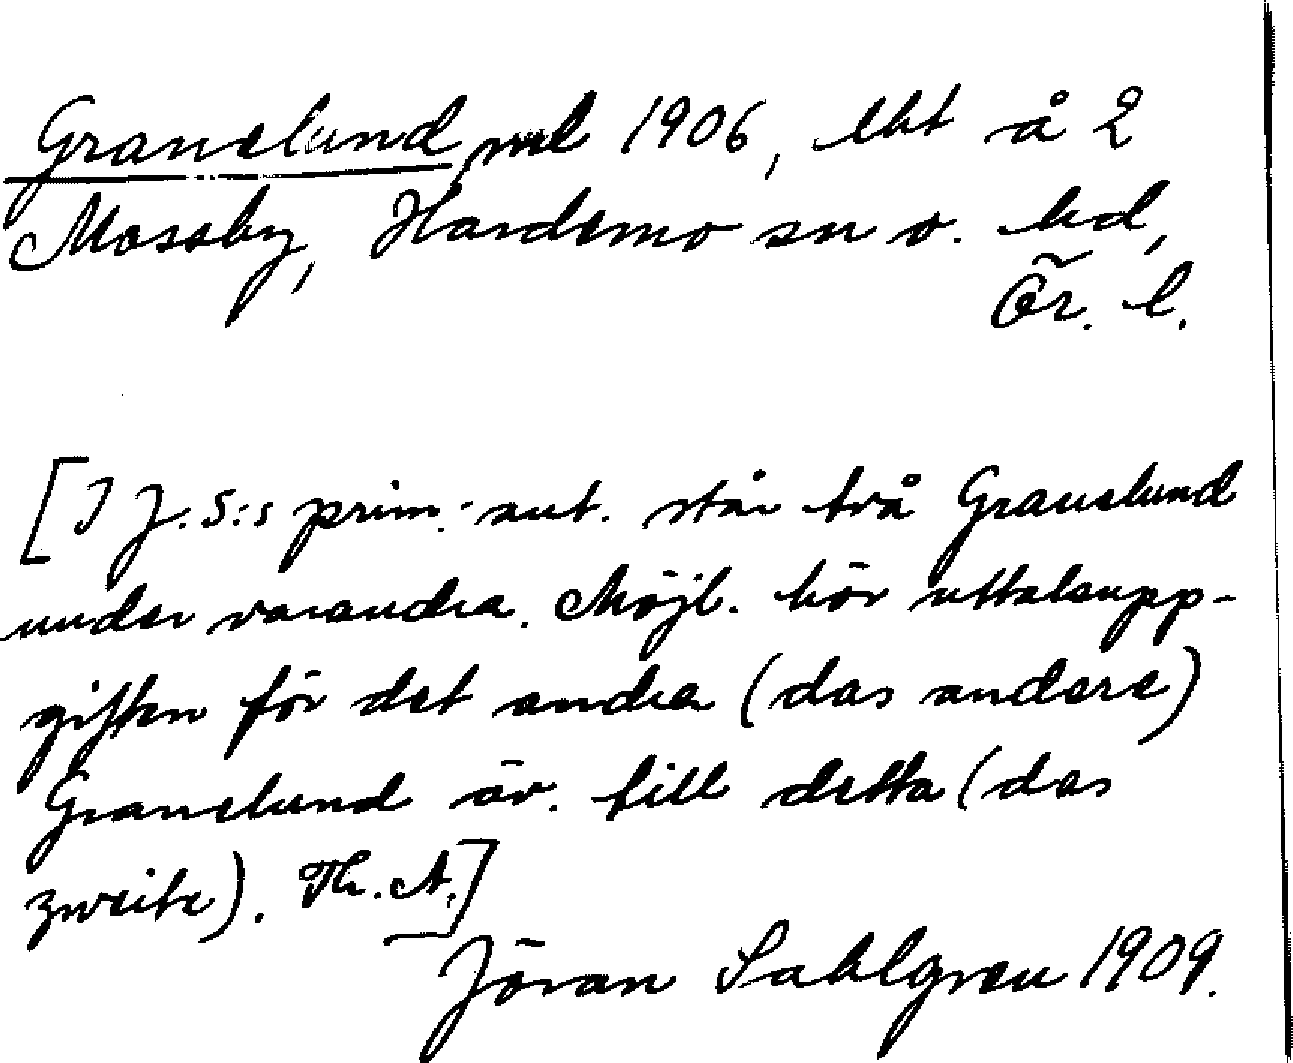 Granslund, ml 1906, lht å 2
Mossby, Hardemo sn o. hd,
Ör. l.
[I J. S:s prim.-ant. står två Granslund
under varandra. Möjl. hör uttalsupp-
giften för det andra (das andere)
Granslund äv. till detta (das
zweite). Th. A.]
Jöran Sahlgren 1909.